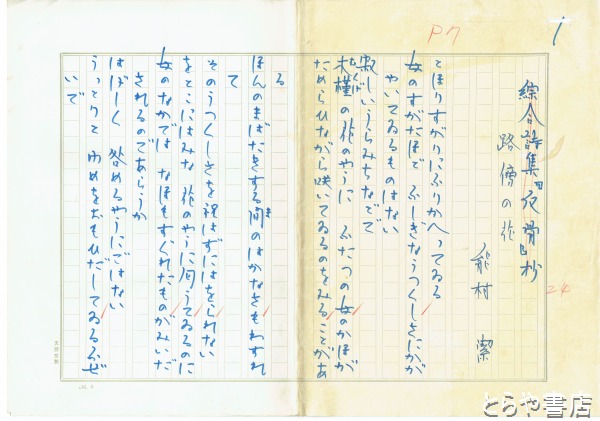 P7
1
綜合詩集『夜骨』抄
路傍の花
能村 潔
24
とほりすがりにふりかへってゐる
女のすがたほど ふしぎなうつくしさにかが
やいてゐるものはない
寂しいうらみちなどで
木槿の花のやうに ふたつの女のかほが
むくげ
ためらひながら咲いてゐるのをみることがあ
る
ほんのまばたきする間のはかなさもわすれ
ま
て
そのうつくしさを祝はずにはをられない
をとこにはみな 花のやうに匂うてゐるのに
女のなかでは なほもすぐれたものがみいだ
されるのであらうか
はげしく 咎めるやうにではない
うっとりと ゆめをおもひだしてゐるぜ
いで
とらや書店